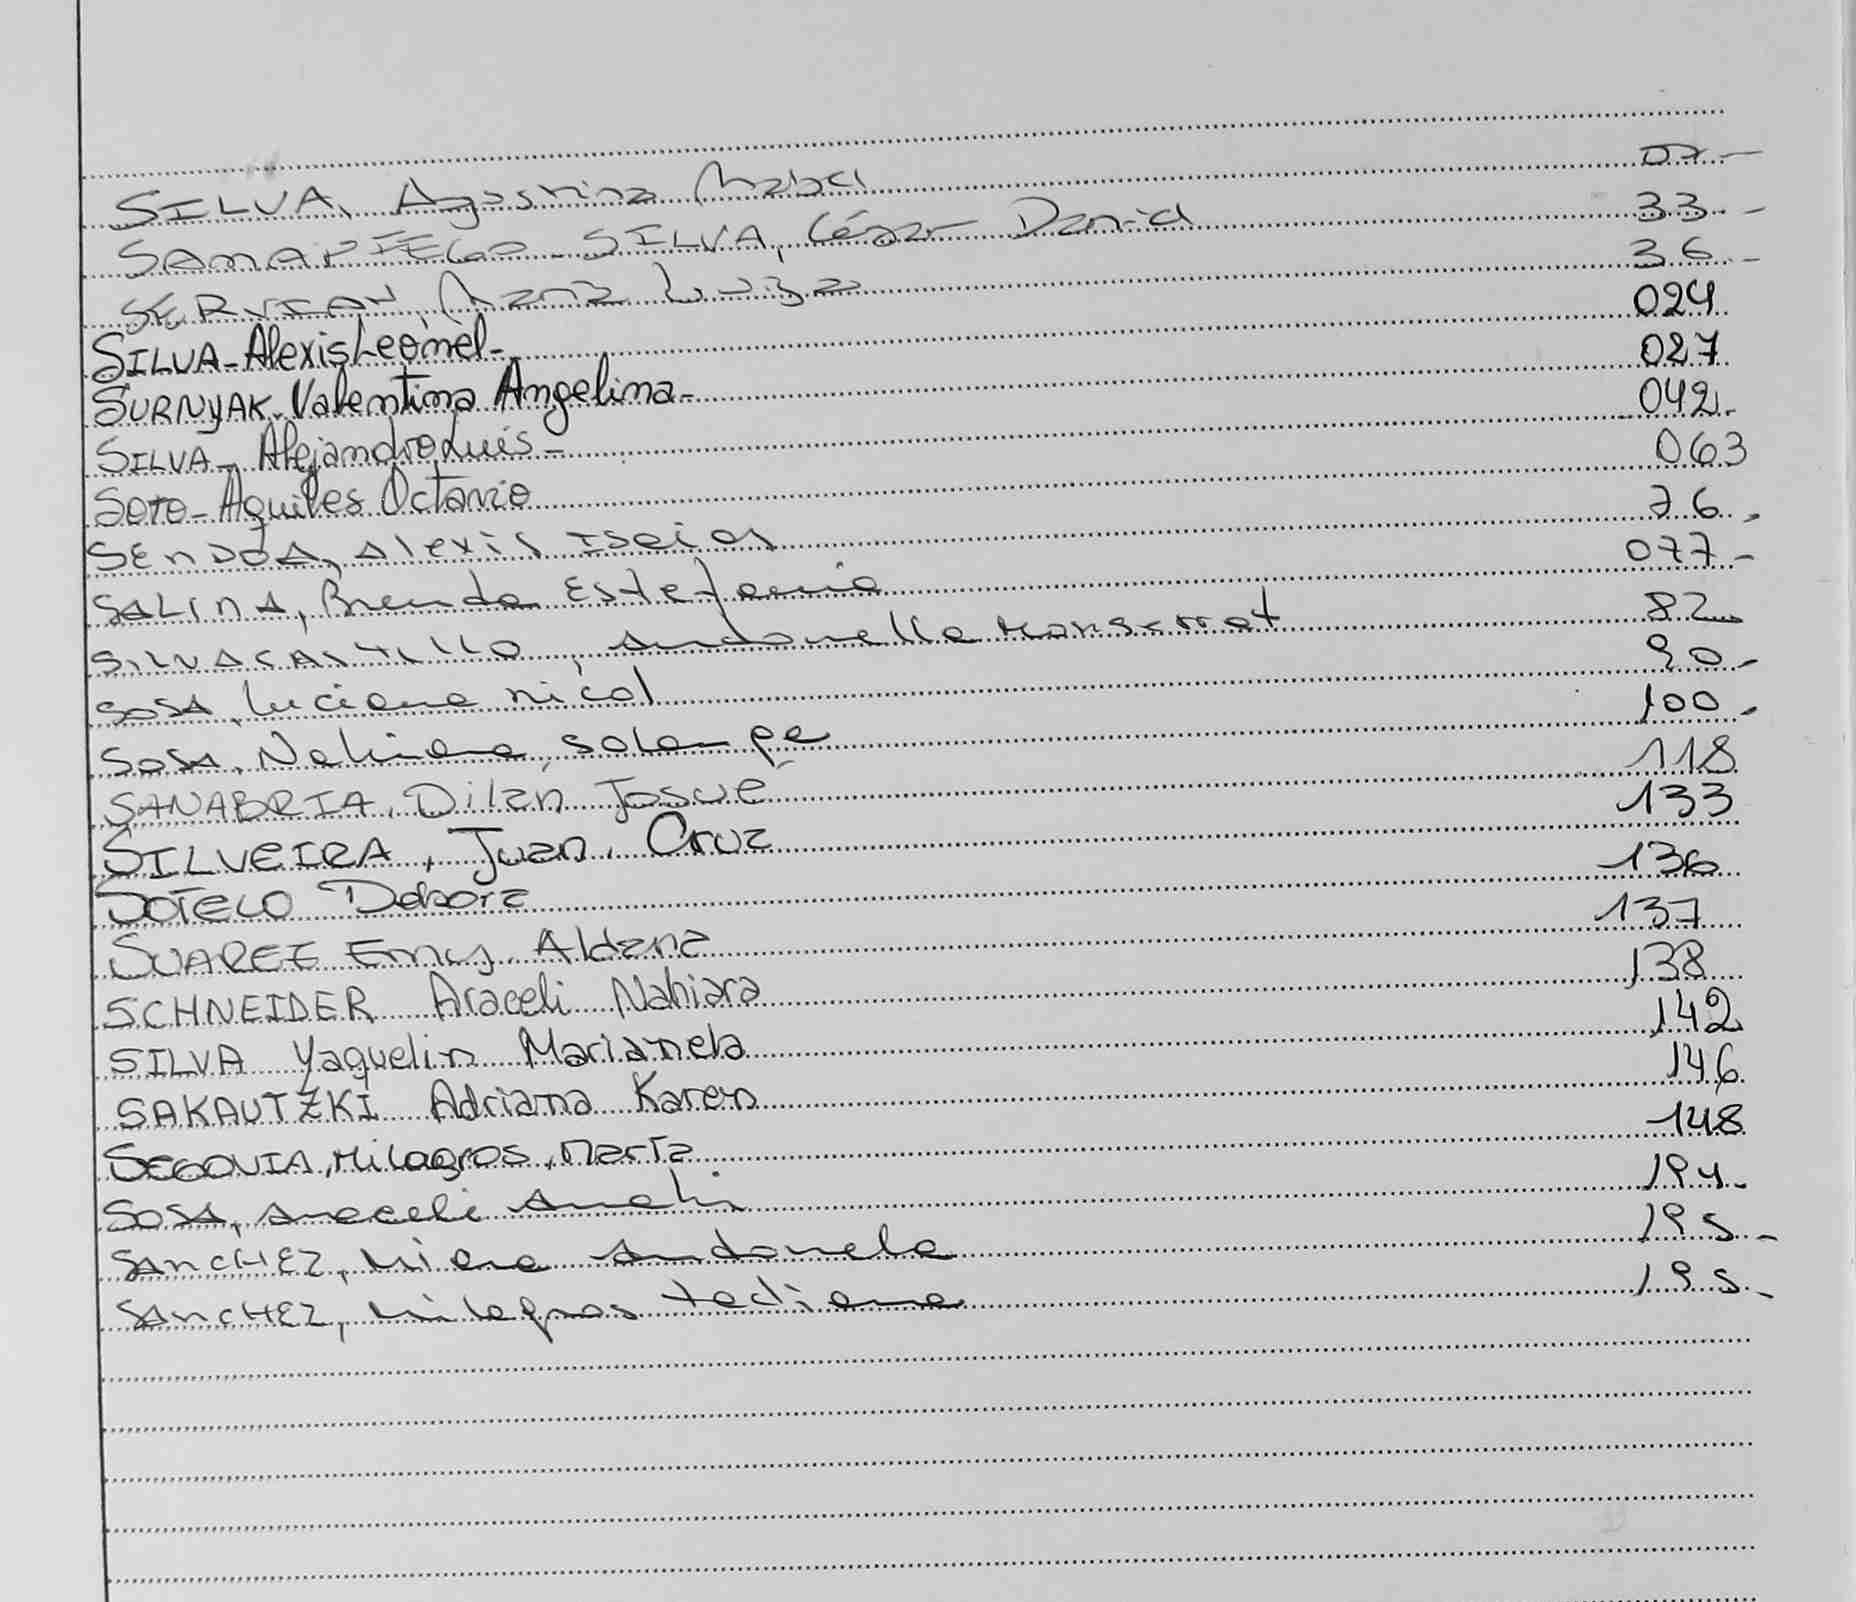 SILVA, Agostina Mabel 07-
SAMAPIEGO SILVA, César Daniel 33.-
SERVIAN, Maria Luiza 36.-
SILVA-Alexis Leonel- 024
SURNYAK-Valentina Angelina- 027
SILVA-Alejandro Luis- 042.
SOTO-Aquiles Octavio 063
SENDOA, Alexis Isaias 76.
SALINA, Brenda Estefania 077-
SILVA CASTILLO, Antonella Monserrat 82
SOSA, Luciana nicol 90-
SOSA, Nahiara, Solange 100.
SANABRIA, Dilan Josué 118
SILVEIRA, Juan, Cruz 133
SOTELO Debora 136
SUAREZ Emy, Aldana 137
SCHNEIDER Araceli Nahiara 138
SILVA Yaquelin Marianela 142
SAKAUTZKI Adriana Karen 146
SEGOVIA, Milagros, Marta 148
SOSA, Araceli Anahi 194.
SANCHEZ, Miena Antonela 195.-
SANCHEZ, Milagros Tatiana 195.-